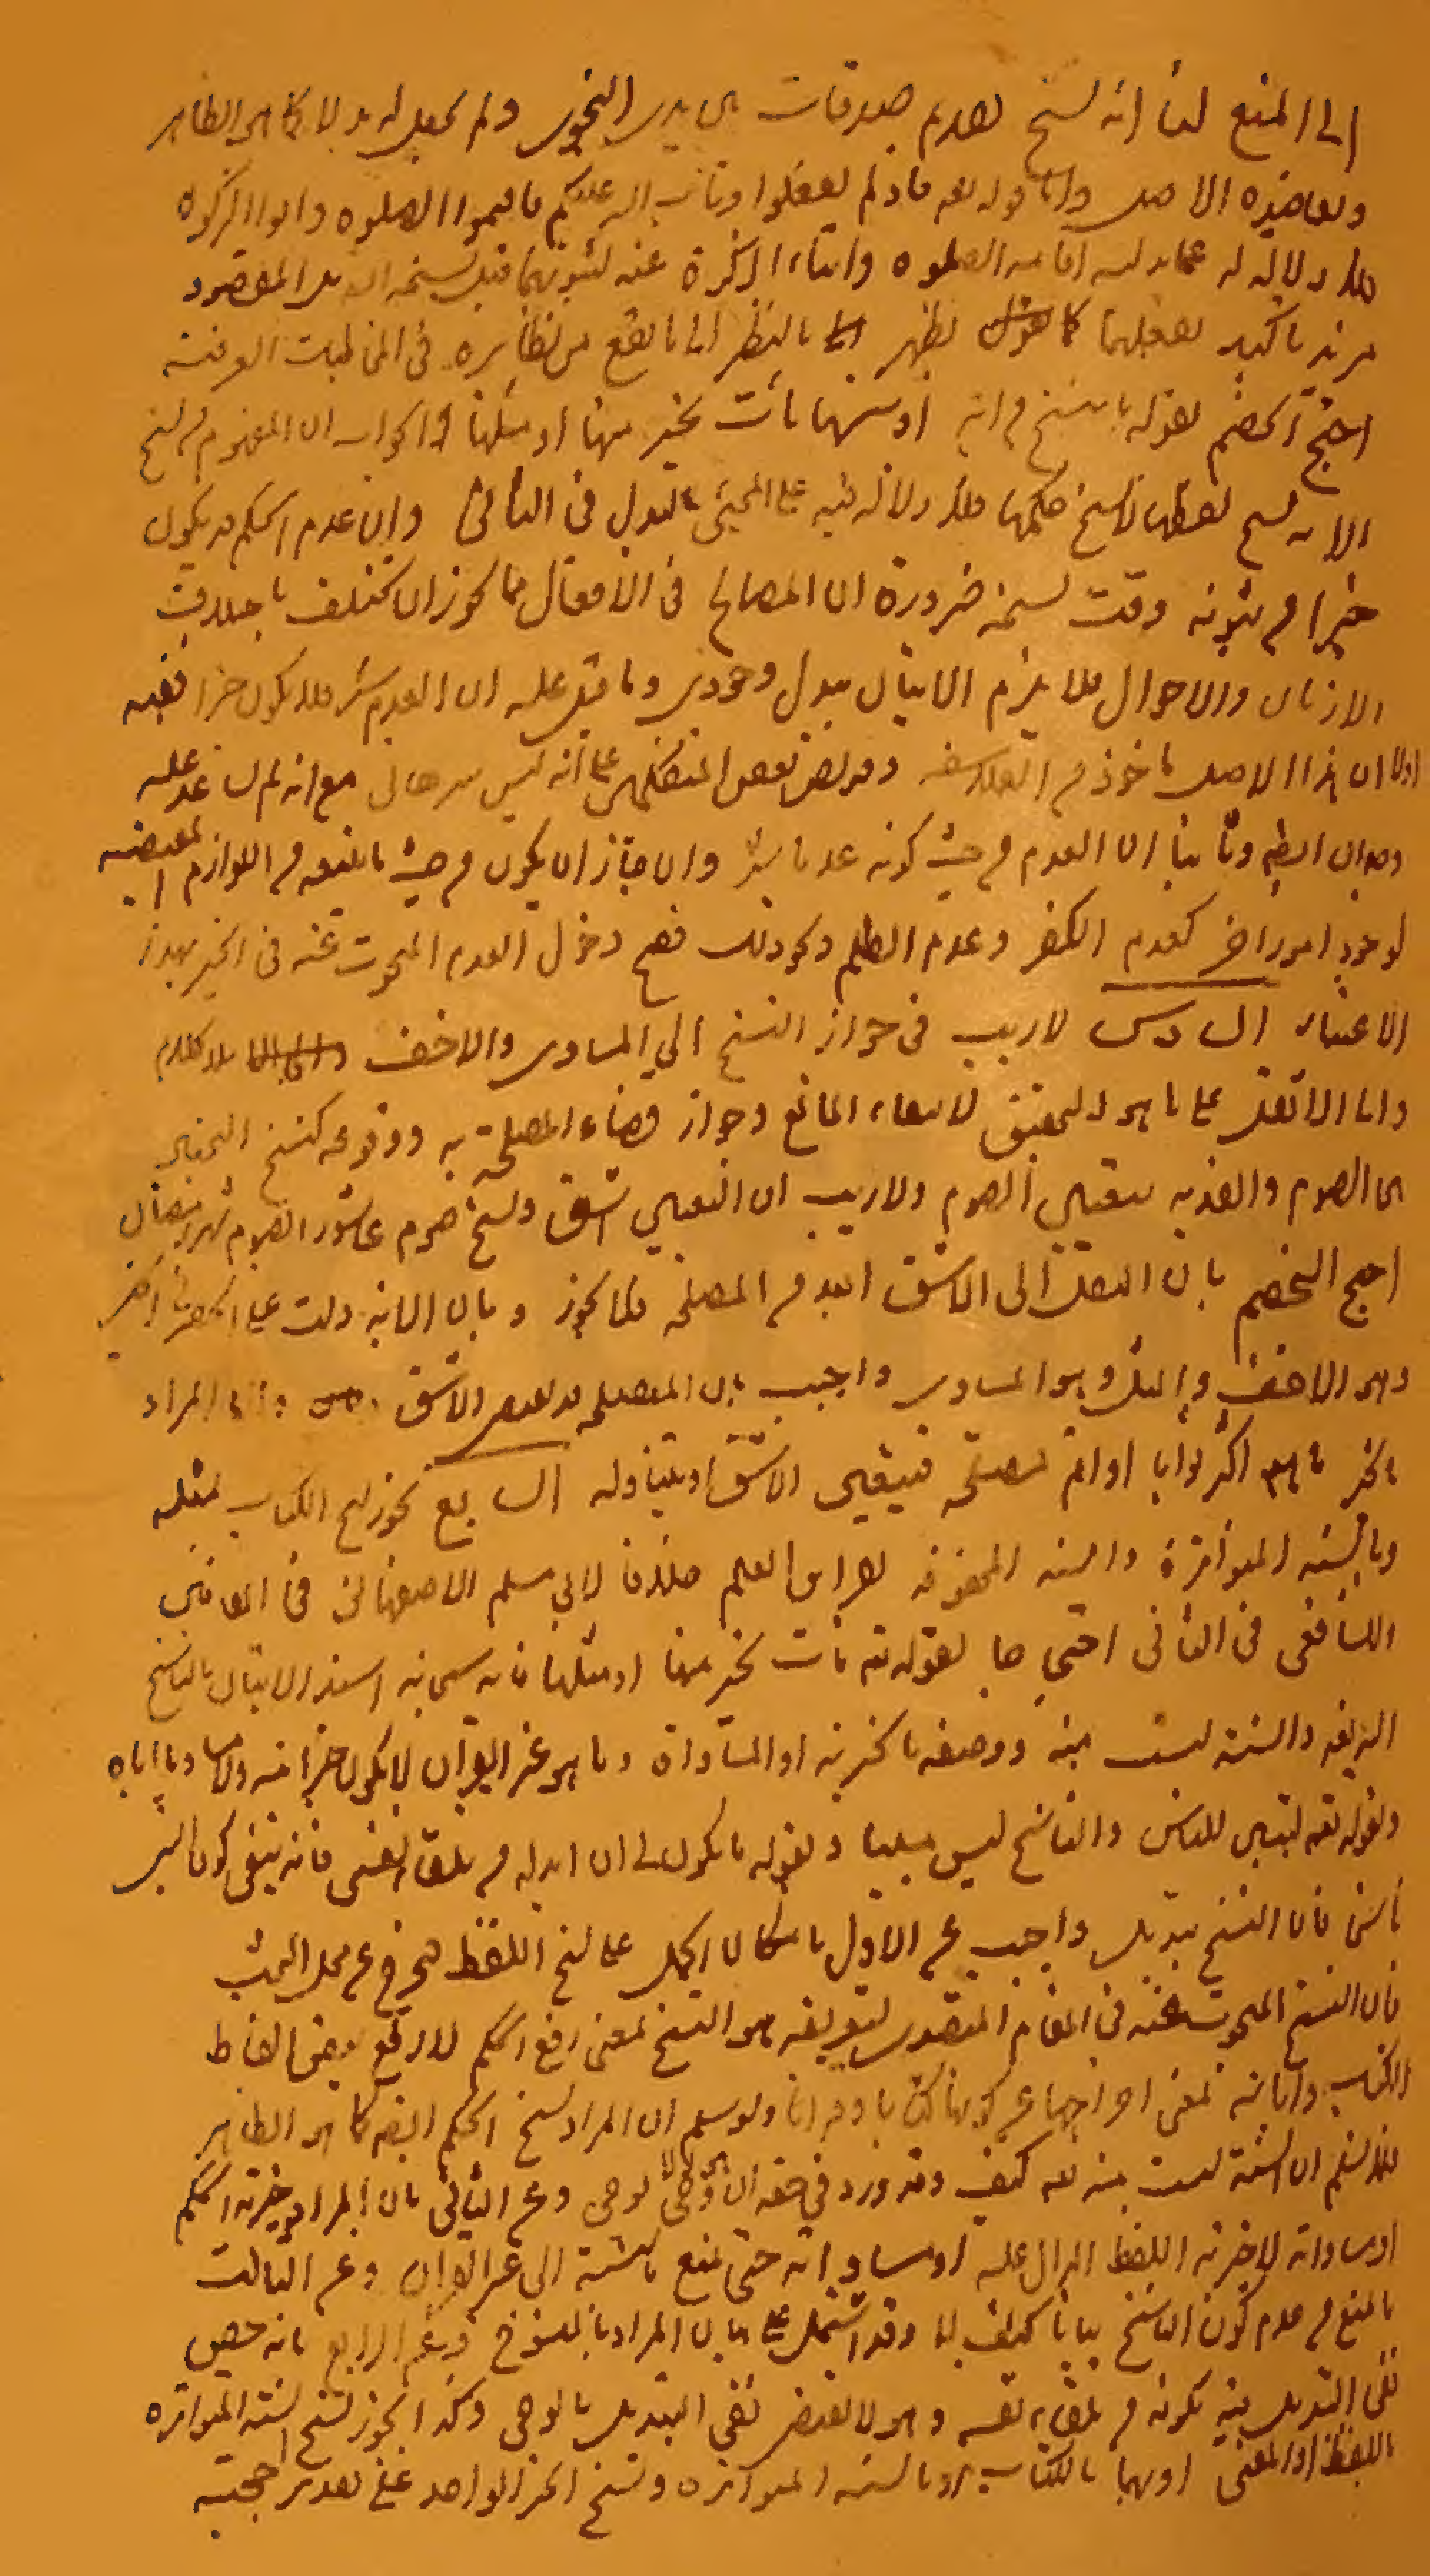 الى المنع لنا انه نسخ تقديم صدقات بين يدى النجوى ولم يجعل له بدلا كما هو الظاهر
ويعاضده الاصل واما قوله تعه فاذ لم تفعلوا وتاب الله عليكم فاقيموا الصلوة واتوا الزكوة
فلا دلالة له على بدلية اقامة الصلوة وايتاء الزكوة عنه لثبوتهما قبل نسخه المقصود
مزيد تاكيد لفعلهما كما يظهر بالنظر الى ما يقع من نظايره فى المخاطبات العرفية
احتج الخصم بقوله ما ننسخ من اية او ننسها نات بخير منها او مثلها والجواب ان المفهوم من نسخ
الاية نسخ لفظها لا نسخ حكمها فلا دلالة فيه على المجيئ بالبدل فى الثانى وان عدم الحكم قد يكون
خيرا من ثبوته وقت نسخه ضرورة ان المصالح فى الافعال مما يجوز ان يختلف باختلاف
الازمان والاحوال فلا يلزم الاتيان ببدل وجودى وما قيل عليه ان العدم شر فلا يكون خيرا ففيه
اولا ان هذا الاصل ماخوذ من الفلاسفة وقد نص بعض المتكلمين على انه ليس ببرهانى مع انه لم يساعد عليه
وجدان ايضا وثانيا ان العدم من حيث كونه عدما شر وان جاز ان يكون من حيث ما يتبعه من اللوازم المقتضية
لوجود امور اخر كعدم الكفر وعدم الظلم ونحو ذلك فصح دخول العدم المبحوث عنه فى الخير بهذا
الاعتبار السادس لا ريب فى جواز النسخ الى المساوى والاخف بلا كلام
واما الاثقل على ما هو التحقيق لانتفاء المانع وجواز قضاء المصلحة به ووقوعه كنسخ التخيير
بين الصوم والفدية بتعيين الصوم ولا ريب ان التعيين اشق ونسخ صوم عاشورا بصوم شهر رمضان
احتج الخصم بان النقل الى الاشق ابعد من المصلحة فلا يجوز وبان الاية دلت على الخير
وهو الاخف والمثل وهو المساوى واجيب بان المصلحة قد تقتضى الاشق المراد
بالخير ما هو اكثر ثوابا او اتم مصلحة فيتعين الاشق او يتناوله السابع يجوز نسخ الكتاب بمثله
وبالسنة المتواترة والسنة المحفوفة بقراين العلم خلافا لابى مسلم الاصفهانى فى
للشافعى فى الثانى احتجاجا بقوله تعه نات بخير منها او مثلها فانه سبحانه اسند الاتيان بالناسخ
اليه تعه والسنة ليست منه ووصفه بالخيرية او المساواة وما هو غير القران لا يكون خيرا منه ولا مساويا اياه
وبقوله تعه لتبين للناس والناسخ ليس مبينا وبقوله ما يكون لى ان ابدله من تلقاء نفسى فانه ينفى كون السنة
ناسخا فان النسخ تبديل واجيب عن الاول بامكان الحمل على نسخ اللفظ فيخرج عن محل البحث
فان النسخ المبحوث عنه فى المقام المتصدى لتعريفه هو النسخ بمعنى رفع الحكم لا رفع بعض الفاظ
الكتاب واياته بمعنى اخراجها عن كونها كتابا وقرانا ولو سلم ان المراد نسخ الحكم ايضا كما هو الظاهر
فلا نسلم ان السنة ليست منه تعه كيف وقد ورد فى حقه ان هو الا وحى يوحى وعن الثانى بان المراد خيرية الحكم
او مساواته لا خيرية اللفظ الدال عليه او مساواته حتى يمنع بالنسبة الى غير القران وعن الثالث
بالمنع من عدم كون الناسخ بيانا كيف لا وقد اشتمل على بيان المراد بالمنسوخ وعن الرابع بانه خصص
نفى التبديل منه بكونه من تلقاء نفسه وهو لا يقتضى نفى التبديل بالوحى وكذا يجوز نسخ السنة المتواترة
باللفظ او المعنى او بهما بالكتاب او بالسنة المتواترة ونسخ الخبر الواحد على تقدير حجيته